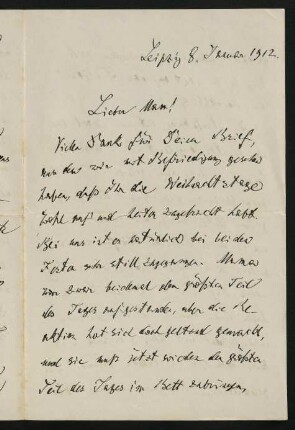 Leipzig 8. Januar 1912.
Lieber Mann!
Vielen Dank für Deinen Brief,
aus dem wir mit Befriedigung gesehen
haben, daß Ihr die Weihnachtstage
wohl und heiter zugebracht habt.
Bei uns ist es natürlich bei beiden
Festen sehr still zugegangen. Mama
war zwar beidemal den größten Teil
des Tages aufgestanden, aber die Re-
aktion hat sich doch geltend gemacht,
und sie muß jetzt wieder den größten
Teil des Tages im Bett zubringen,